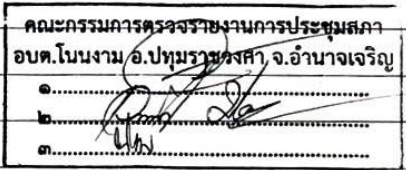 คณะกรรมการตรวจรายงานการประชุมสภา
อบต.โนนงาม อ.ปทุมราชวงศา จ.อำนาจเจริญ
๑..........................................................
๒..........................................................
๓..........................................................